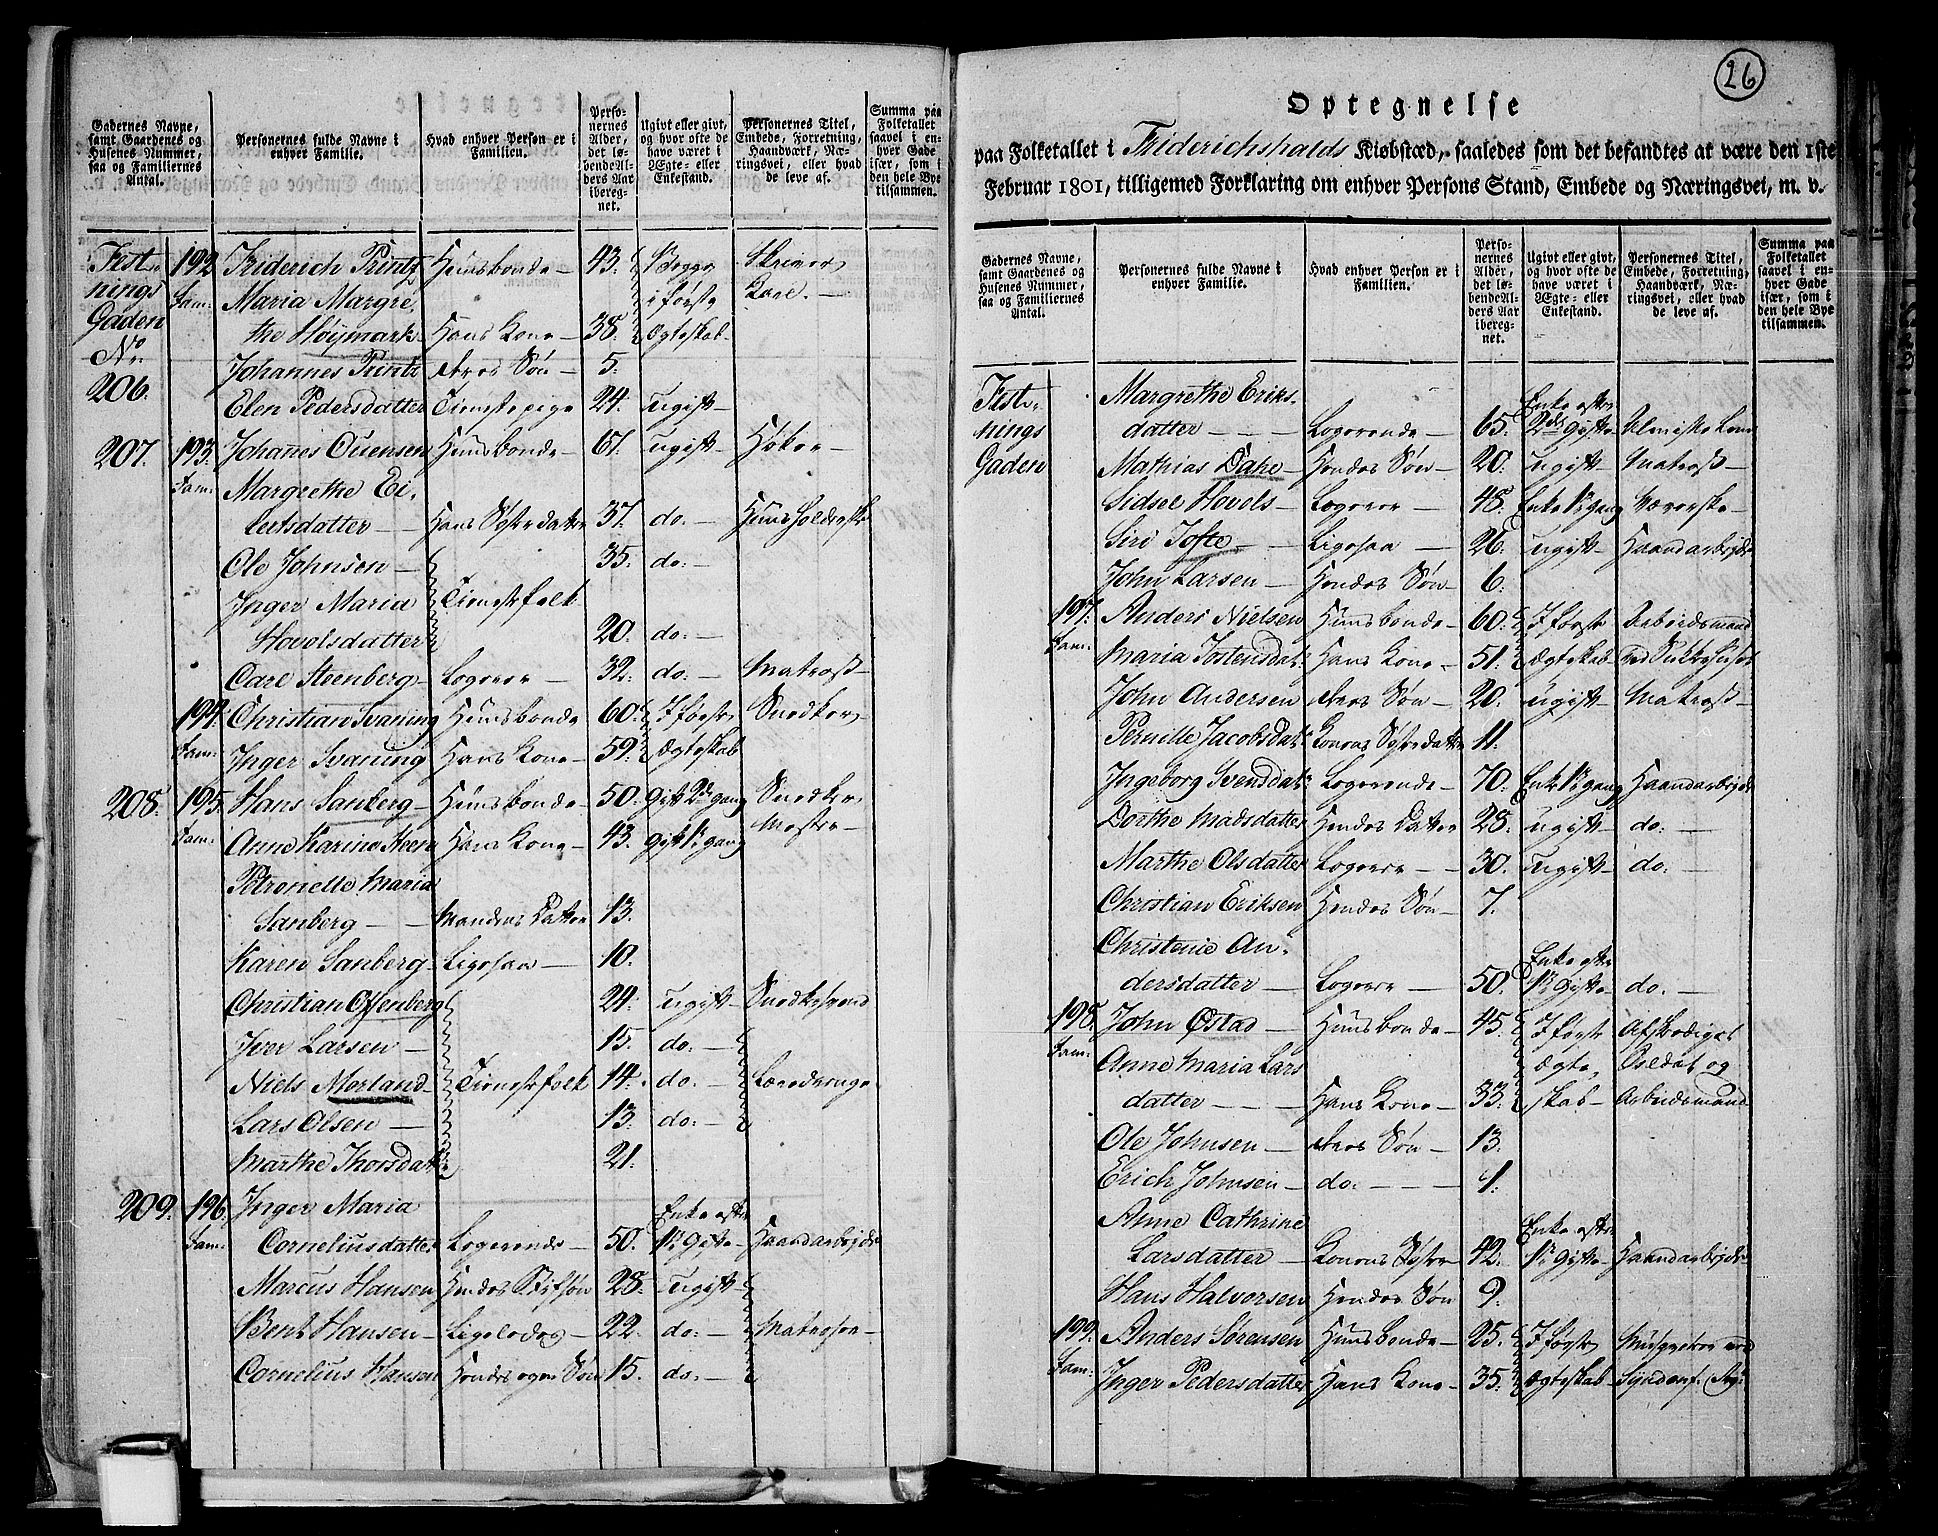 Gadernes Navne, samt Gaardenes og Husenes Nummer, saa og Familiernes Antal.
Personernes fulde Navne i enhver Familie.
Hvad enhver Person er i Familien.
Personernes Alder, det løbende Alders Aar iberegnet.
Ugivt eller givt, og hvor ofte de have været i Ægte- eller Enkestand.
Personernes Titel, Embede, Forretning, Haandværk, Næringsvei, eller hvad de leve af.
Summa paa Folketallet saavel i enhver Gade især, som i den hele Bye tilsammen.
Fest- 192 Friderich Printz Huusbonde 43. Begge Skriver
nings Fam: Maria Margre- i første Kare.
Gaden the Höijmark Hans Kone 38. Ægteskab
No Johannes Printz deres Søn 5.
206. Elen Pedersdatter Tienestepige 24. ugift
207. 193. Johannes Ouensen Huusbonde 61. ugift Høker
Fam: Margrethe Ei-
lertsdatter Hans Søsterdatter 37. do. Huusholderske
Ole Johnsen 35. do.
Inger Maria Tienestefolk
Hovelsdatter 20. do.
Carl Steenberg Logerer 32. do. Matros
194. Christian Svaning Huusbonde 60. I første Snedker
Fam: Inger Svaning Hans Kone 59. Ægteskab
208. 195. Hans Sanberg Huusbonde 50. gift 2de gang Snedker
Fam: Anne Karine Steen Hans Kone 43. gift 1ste gang Mester
Petronelle Maria
Sanberg Mandens Datter 13.
Karen Sanberg Ligesaa 10.
Christian Offenberg 24. ugift Snedkersvend
Iver Larsen 15. do.
Niels Morland Tienestefolk 14. do. Læredrenge
Lars Olsen 13. do.
Marthe Thorsdat: 21.
209. 196. Inger Maria Enke efter
Fam: Cornelius datter Logerende 50. 1ste Gifte Haandarbejde
Marcus Hansen Hendes Stifsøn 28. ugift
Bent Hansen Ligeledes 22. do. Matroser
Cornelius Hansen Hendes egen Søn 15. do.
26
Optegnelse
paa Folketallet i Friderichshalds Kiøbstæd, saaledes som det befandtes at være den 1ste
Februar 1801, tilligemed Forklaring om enhver Persons Stand, Embede og Næringsvei, m. v.
Gadernes Navne, samt Gaardenes og Husenes Nummer, saa og Familiernes Antal.
Personernes fulde Navne i enhver Familie.
Hvad enhver Person er i Familien.
Personernes Alder, det løbende Alders Aar iberegnet.
Ugivt eller givt, og hvor ofte de have været i Ægte- eller Enkestand.
Personernes Titel, Embede, Forretning, Haandværk, Næringsvei, eller hvad de leve af.
Summa paa Folketallet saavel i enhver Gade især, som i den hele Bye tilsammen.
Fest- Margrethe Eriks- Enke efter
nings datter Logerende 65. 2det Gifte Almisse Lem
Gaden Mathias Dahl Hendes Søn 20. ugift Matros
Sidsel Hovels Logerer 48. Enke 1ste gang Væverske
Siri Tofte Ligesaa 26. ugift Haandarbejde
John Larsen Hendes Søn 6.
197. Anders Nielsen Huusbonde 60. I første Arbeidsmand
Fam: Maria Jostensdat: Hans Kone 51. Ægteskab
John Andersen deres Søn 20. ugift Matros
Pernille Jacobsdat: Konens Søsterdatter 11.
Ingeborg Svenddat: Logerende 70. Enke 1ste gang Haandarbejde
Dorthe Madsdatter Hendes Datter 28. ugift do.
Marthe Olsdatter Logerer 30. ugift do.
Christian Eriksen Hendes Søn 7.
Christenie An- Enke efter
dersdatter Logerer 50. 1ste Gifte do.
198. John Østad Huusbonde 45. I første Afskediget
Fam: Anne Maria Lars Ægte- Soldat og
datter Hans Kone 33. skab Arbeidsmand
Ole Johnsen deres Søn 13.
Erich Johnsen do. 1.
Anne Cathrine Enke efter
Larsdatter Konens Søster 42. 1ste Gifte Haandarbejde
Hans Halvorsen Hendes Søn 9.
199. Anders Sørensen Huusbonde 25. I første Musqueteer ved
Fam: Inger Pedersdatter Hans Kone 35. Ægteskab Syndenf. Reg: